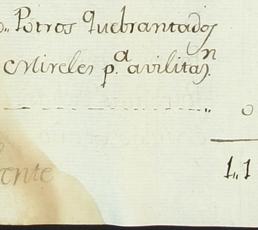 Potros Quebrantados
Mireles p.ª avilitaⁿ.
0
1,,1
ente